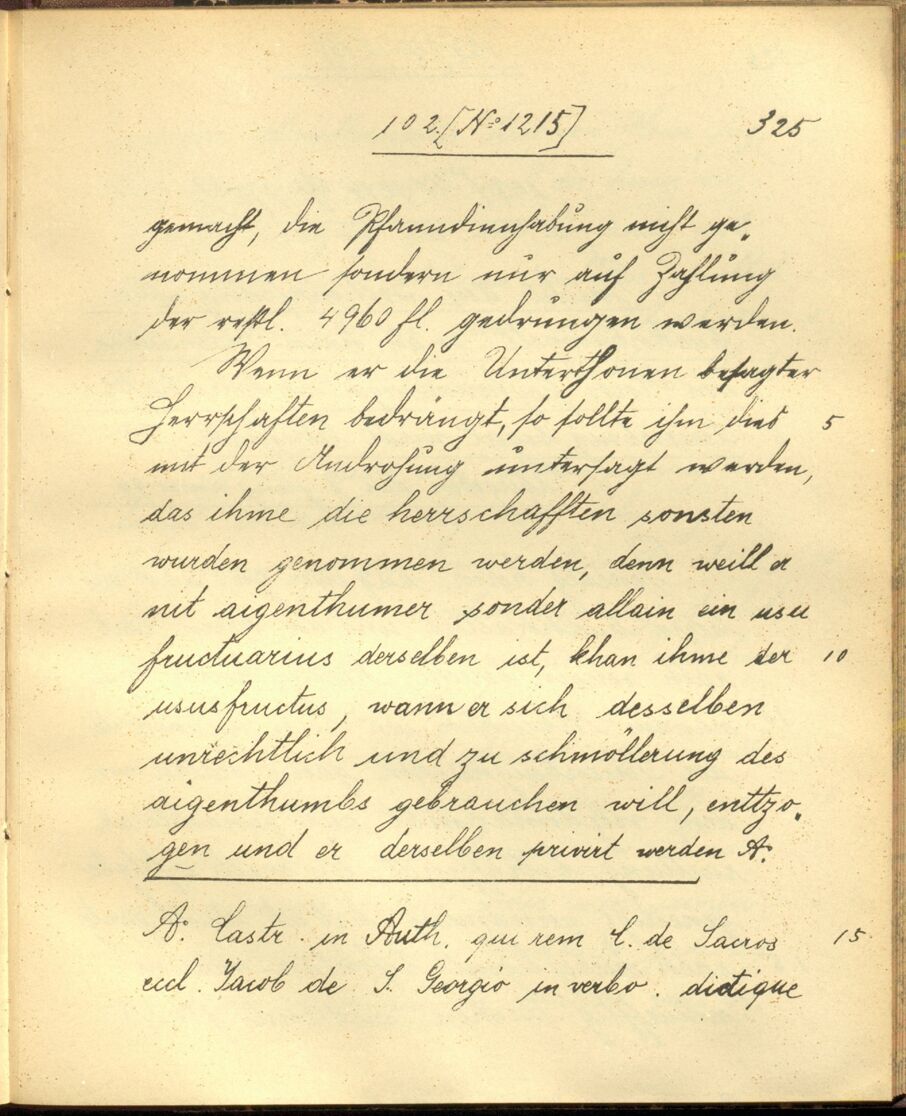 102. [No 1215] 325
gemacht, die Pfanndinnhabung nicht ge„
nommen sondern nur auf Zahlung
der restl. 4960 fl. gedrungen werden.
Wenn er die Unterthonen besagter
Herrschaften bedrängt, so sollte ihm dies 5
mit der Androhung untersagt werden,
das ihme die herrschafften sonsten
wurden genommen werden, denn weill er
nit aigenthumer sonder allain ein usu
fructuarius derselben ist, khan ihme der 10
ususfructus, wann er sich desselben
unrechtlich und zu schmöllerung des
aigenthumbs gebrauchen will, enttzo„
gen und er derselben privirt werden A.
A. Castr. in Auth. qui rem C. de Sacros 15
eccl. Jacob de S. Georgio in verbo. dictique